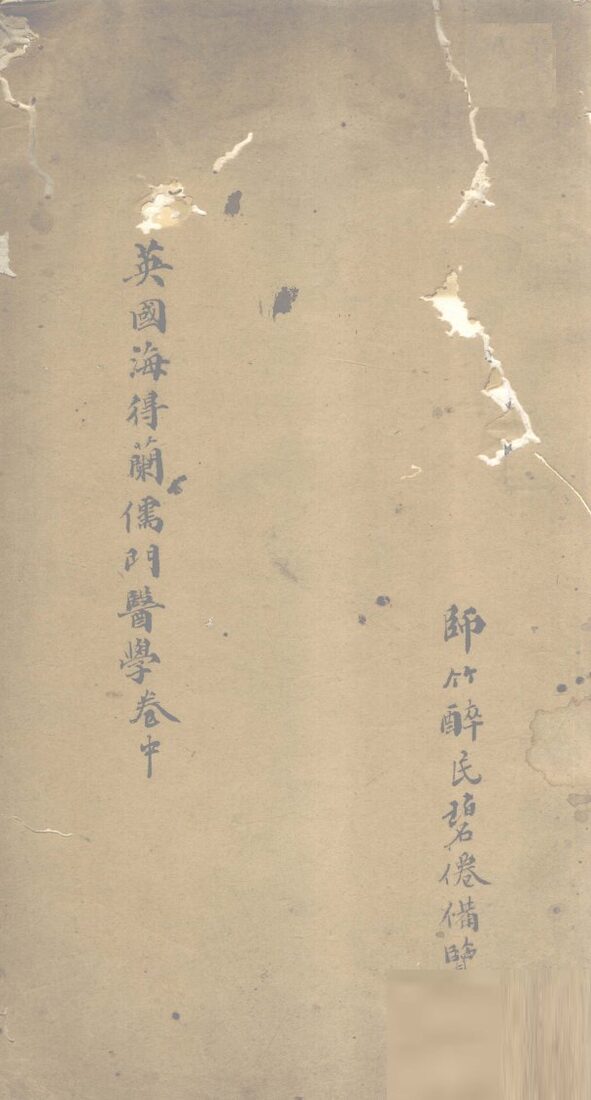 師竹醉民碧倦備覽
英國海得蘭儒門醫學卷中